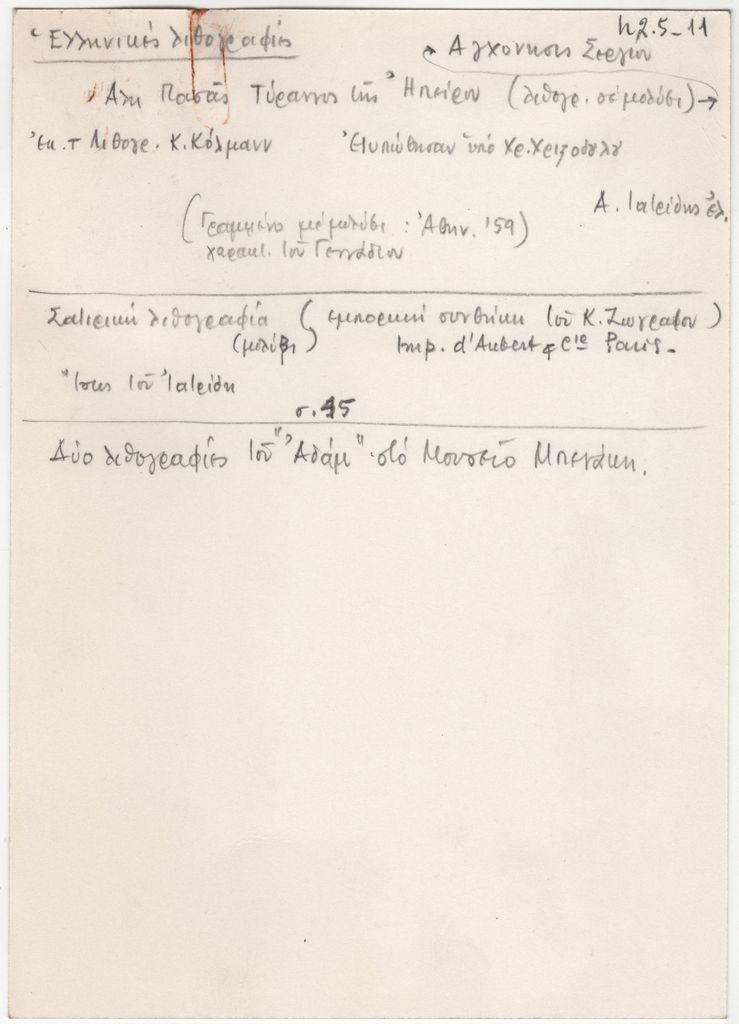 h2.5-11
Ἑλληνικές λιθογραφίες
Ἀγχόνησις Σεργίου
Ἀλη Πασᾶς Τύραννος τῆς Ἠπείρου (λιθογρ. σέ μολύβι) →
Ἐκ. τ Λιθογρ. Κ. Κόλμανν Ἐτυπώθησαν ὑπό Χρ. Χριζοδούλου
Α. Ιατρίδης ἐλ.
(Γραμμένο μέ μολύβι : Ἀθην. '59)
χαρακτ. τοῦ Γενναδίου
Σατιρική λιθογραφία (εμπορική συνθήκη τοῦ Κ. Ζωγραφου)
(μολύβι) Imp. d'Aubert & Cie Paris.
Ἴσως τοῦ Ἰατρίδη
σ. 15
Δύο λιθογραφίες τοῦ "Ἀδάμ" στό Μουσεῖο Μπενάκη.